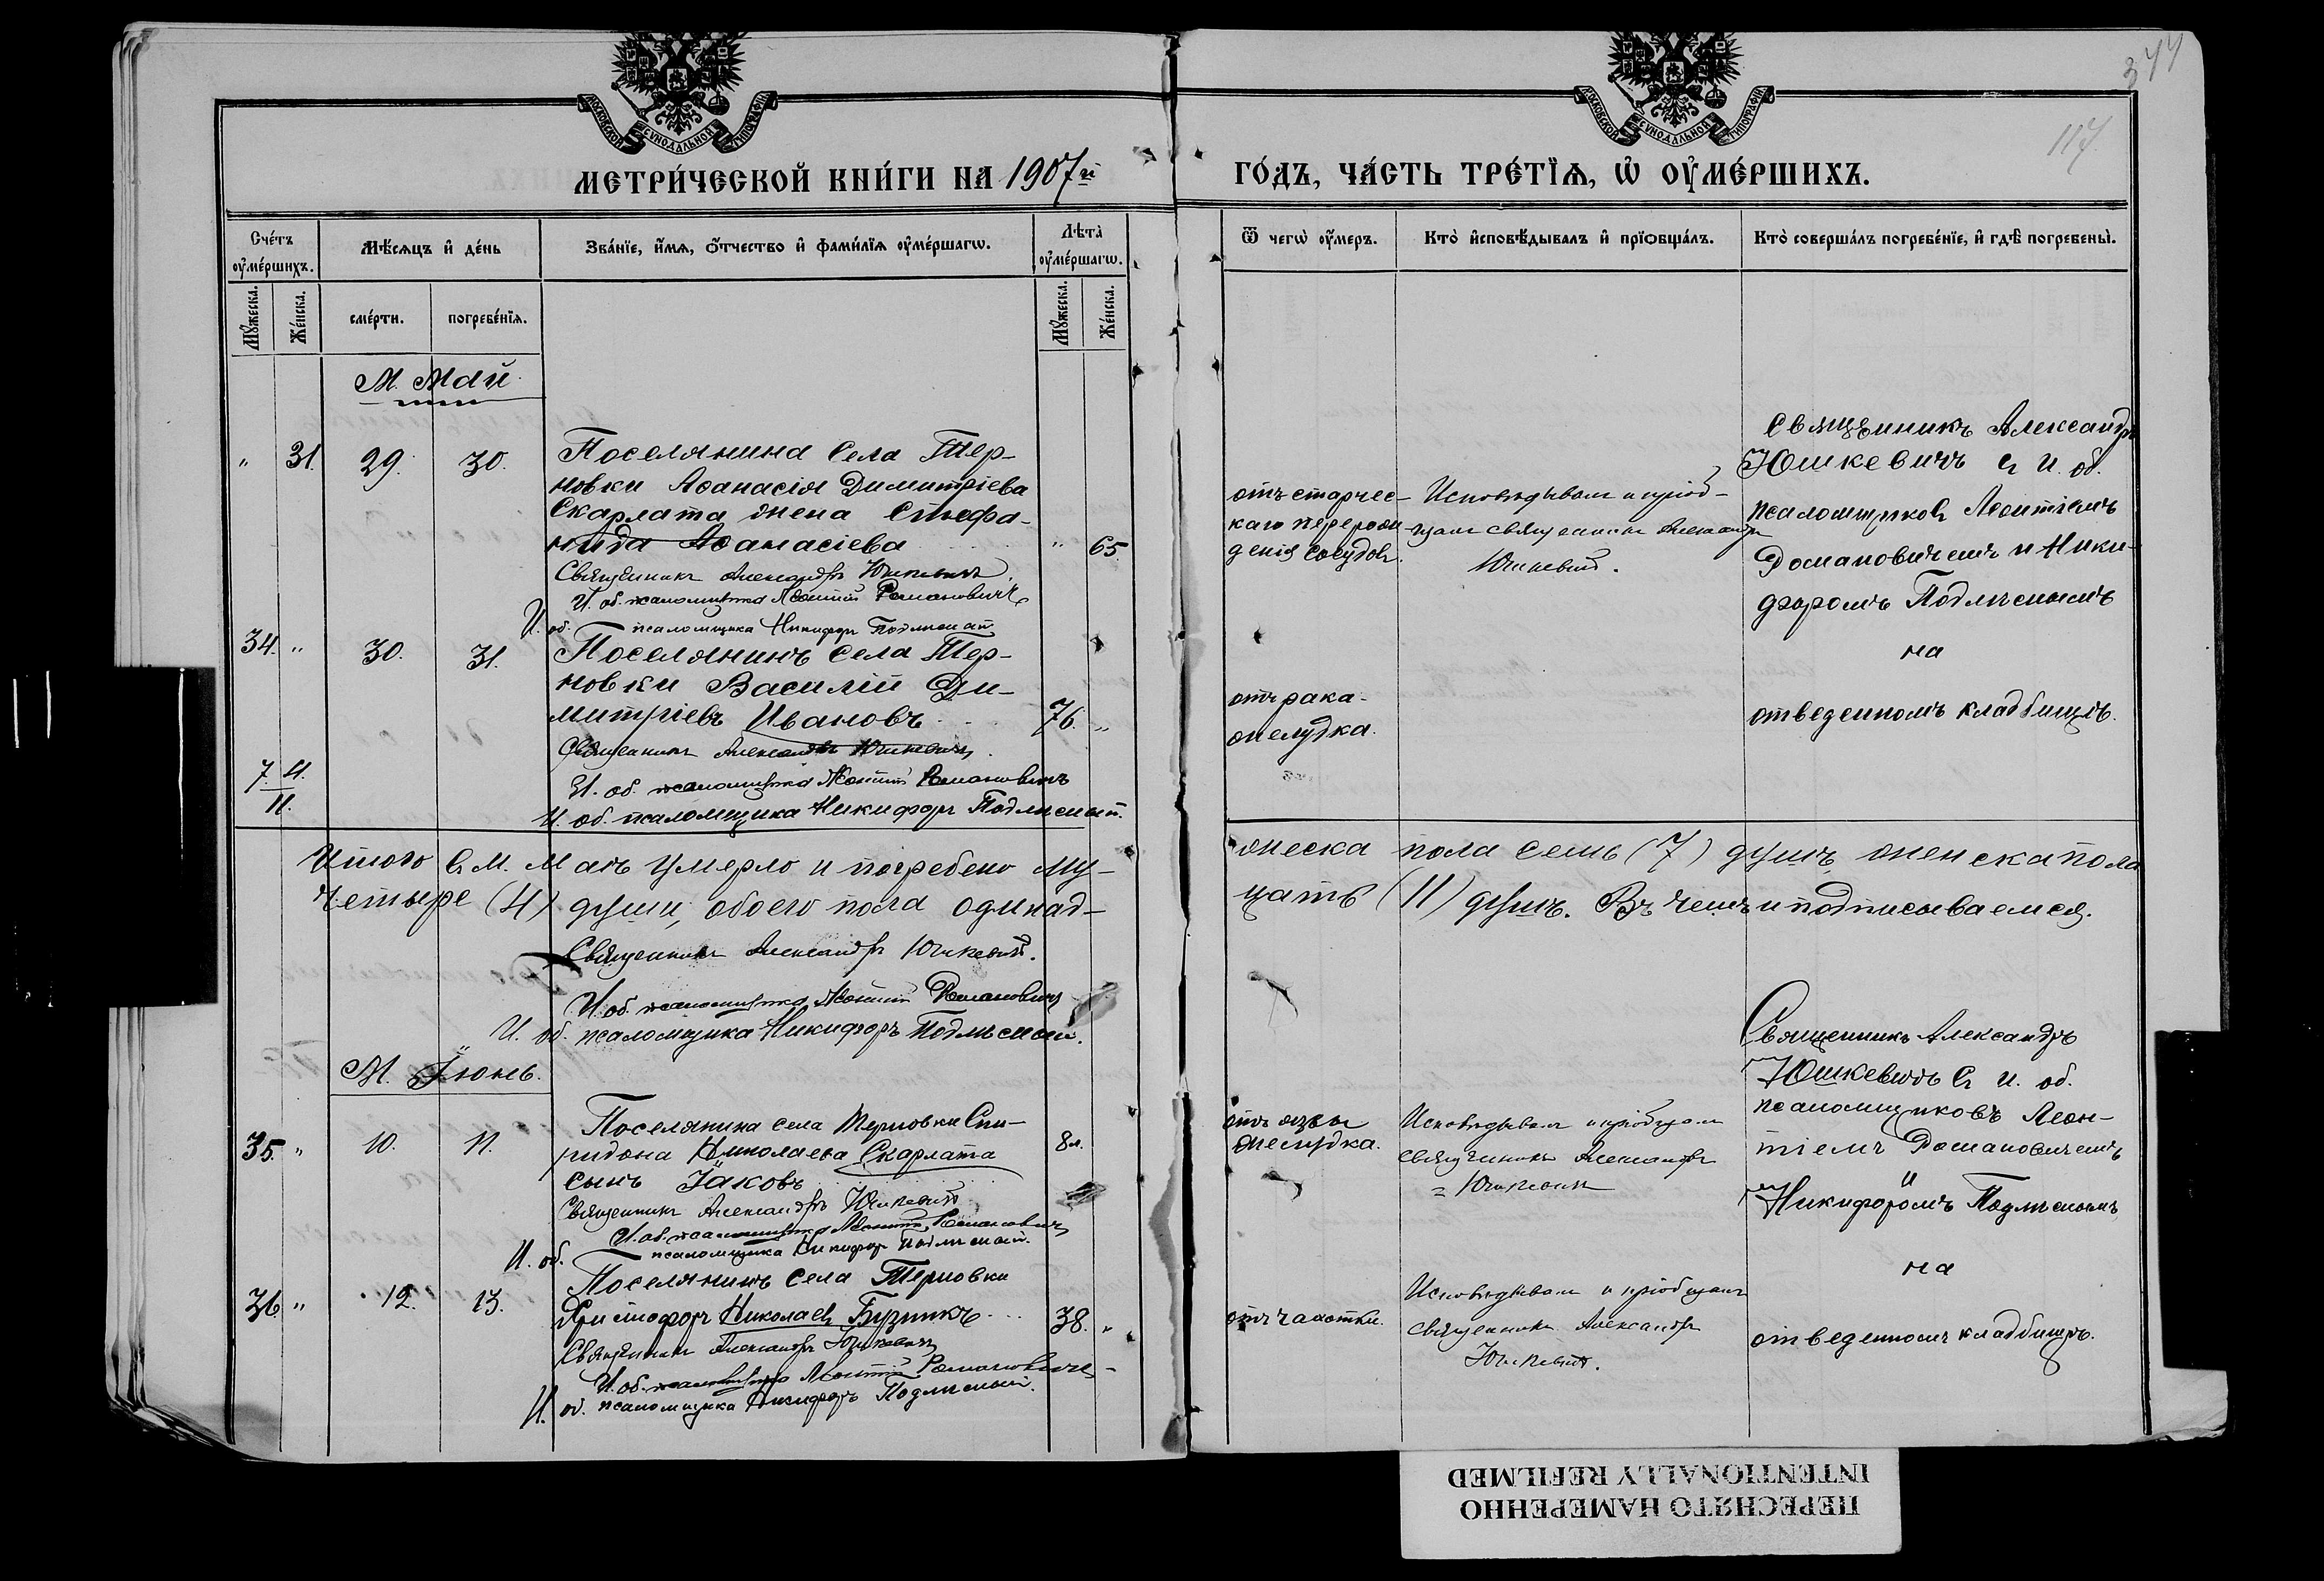 344
117
МОСКОВСКОЙ СѴНОДАЛЬНОЙ ТИПОГРАФІИ
МОСКОВСКОЙ СѴНОДАЛЬНОЙ ТИПОГРАФІИ
МЕТРИ́ЧЕСКОЙ КНИ́ГИ НА 1907й
ГО́ДЪ, ЧА́СТЬ ТРЕ́ТЇѦ, Ѡ҆ ОУ҆МЕ́РШИХЪ.
Сче́тъ оу҆ме́ршихъ.
Мѣ́сѧцъ и҆ де́нь
Зва́нїе, и҆́мѧ, ѻ҆́тчество и҆ фами́лїѧ оу҆ме́ршагѡ.
Лѣта̀ оу҆ме́ршагѡ.
Ѿ чегѡ̀ оу҆́меръ.
Кто̀ и҆сповѣ́дывалъ и҆ прїѻбща́лъ.
Кто̀ соверша́лъ погребе́нїе, и҆ гдѣ̀ погребены̀.
Мꙋ́жеска.
Же́нска.
сме́рти.
погребе́нїѧ.
Мꙋ́жеска.
Же́нска.
М. Май.
" 31. 29. 30.
Поселянина села Тер-
новки Аѳанасія Димитріева
Скарлата жена Стефа-
нида Аѳанасіева " 65
Священникъ Александръ Юшкевичъ
И. об. псаломщика Леонтій Романовичъ
И. об. псаломщика Никифоръ Подлѣсный
отъ старчес-
каго перерож
денія сосудовъ.
Исповѣдывалъ и пріоб-
щалъ священникъ Александръ
Юшкевичъ.
Священникъ Александръ
Юшкевичъ съ И. об.
псаломщиковъ Леонтіемъ
Романовичемъ и Ники-
форомъ Подлѣснымъ
на
отведенномъ кладбищѣ.
34. " 30. 31.
Поселянинъ села Тер-
новки Василій Ди-
митріевъ Ивановъ 76. "
Священникъ Александръ Юшкевичъ
И. об. псаломщика Леонтій Романовичъ
И. об. псаломщика Никифоръ Подлѣсный.
отъ рака
желудка.
7. 4.
11.
Итого въ М. Маѣ умерло и погребено му-
жеска пола семь (7) душъ, женска пола
четыре (4) души, обоего пола одинад-
цать (11) душъ. Въ чемъ и подписываемся.
Священникъ Александръ Юшкевичъ.
И. об. псаломщика Леонтій Романовичъ
И. об. псаломщика Никифоръ Подлѣсный.
М. Іюнь.
35. " 10. 11.
Поселянина села Терновки Спи-
ридона Николаева Скарлата
сынъ Іаковъ 8 л.
Священникъ Александръ Юшкевичъ
И. об. псаломщика Леонтій Романовичъ
И. об. псаломщика Никифоръ Подлѣсный.
отъ язвы
желудка.
Исповѣдывалъ и пріобщалъ
священникъ Александръ
Юшкевичъ
Священникъ Александръ
Юшкевичъ съ И. об.
псаломщиковъ Леон-
тіемъ Романовичемъ
и
Никифоромъ Подлѣснымъ
на
отведенномъ кладбищѣ.
36. " 12. 13.
Поселянинъ села Терновки
Христофоръ Николаевъ Бузникъ 38. "
Священникъ Александръ Юшкевичъ
И. об. псаломщика Леонтій Романовичъ
И. об. псаломщика Никифоръ Подлѣсный.
отъ чахотки.
Исповѣдывалъ и пріобщалъ
священникъ Александръ
Юшкевичъ.
ПЕРЕСНЯТО НАМЕРЕННО
INTENTIONALLY REFILMED